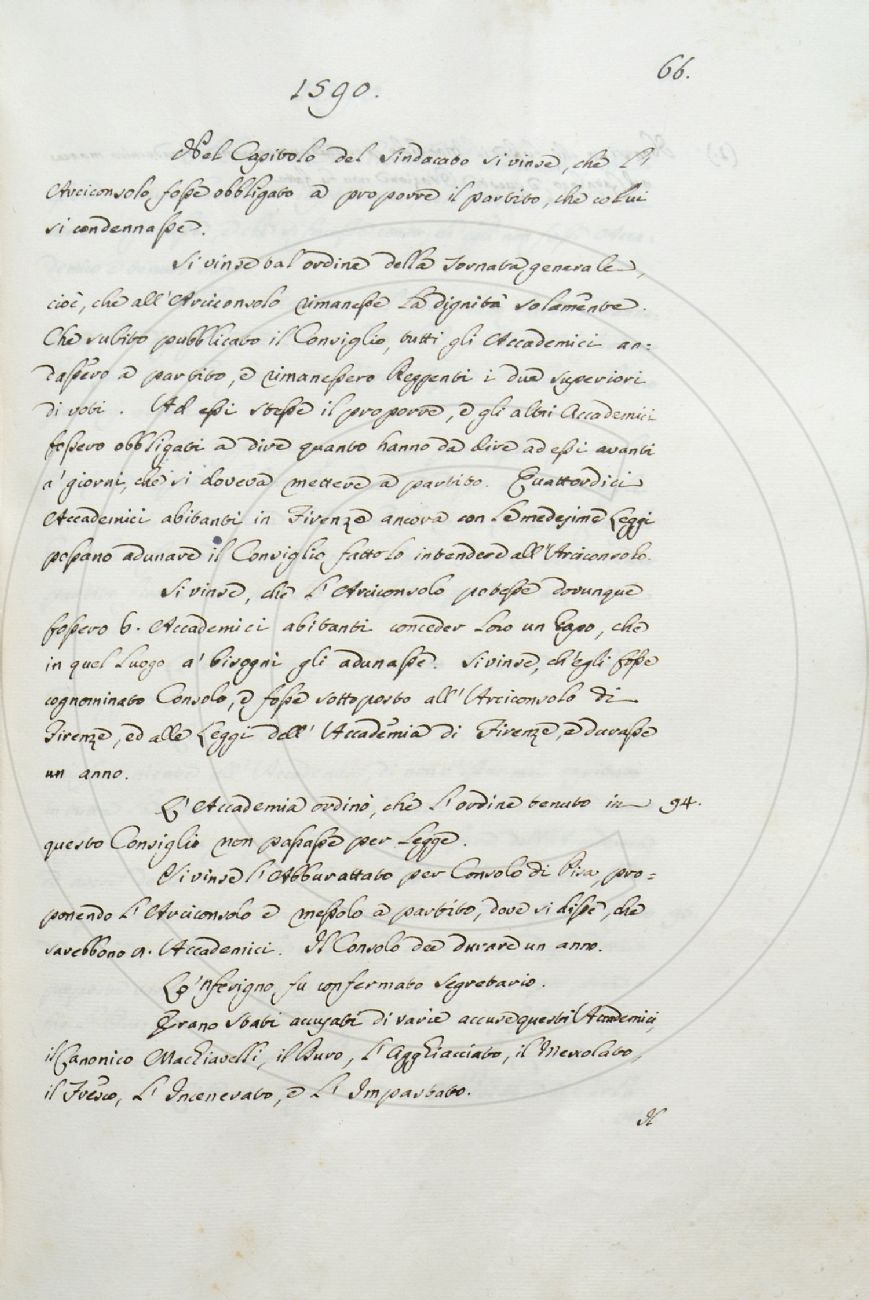 66.
1590.
Nel Capitolo del Sindacato si vinse, che l'
Arciconsolo, fosse obbligato a proporre il partito, che colui
si condennasse.
Si vinse tal'ordine della Tornata generale,
cioè, che all'Arciconsolo rimanesse la dignità solamente.
Che subito pubblicato il Consiglio, tutti gli Accademici an=
dassero a partito, e rimanessero Reggenti i due superiori
di voti. Ad essi stesse il proporre, e gli altri Accademici
fossero obbligati a dire quanto hanno da dire ad essi avanti
a' giorni, che si doveva mettere a partito. Quattordici
Accademici abitanti in Firenze ancora con le medesime Leggi
possano adunare il Consiglio fattolo intendere all'Arciconsolo.
Si vinse, che l'Arciconsolo potesse dovunque
fossero 6. Accademici abitanti conceder loro un Capo, che
in quel Luogo a' bisogni gli adunasse. Si vinse, ch'egli fosse
cognominato Consolo, e fosse sottoposto all'Arciconsolo di
Firenze, ed alle Leggi dell'Accademia di Firenze, e durasse
un anno.
L'Accademia ordinò, che l'ordine tenuto in 94.
questo Consiglio non passasse per Legge.
Si vinse l'Abburattato per Consolo di Pisa, pro=
ponendo l'Arciconsolo e messolo a partito, dove si disse, che
sarebbono 9. Accademici. Il Consolo dee durare un anno.
Lo 'nferigno fu confermato Segretario.
Erano stati accusati di varie accuse questi Accademici,
il Canonico Machiavelli, il Duro, l'Agghiacciato, il Mescolato,
il Fresco, l'Incenerato, e l'Impastato.
Il